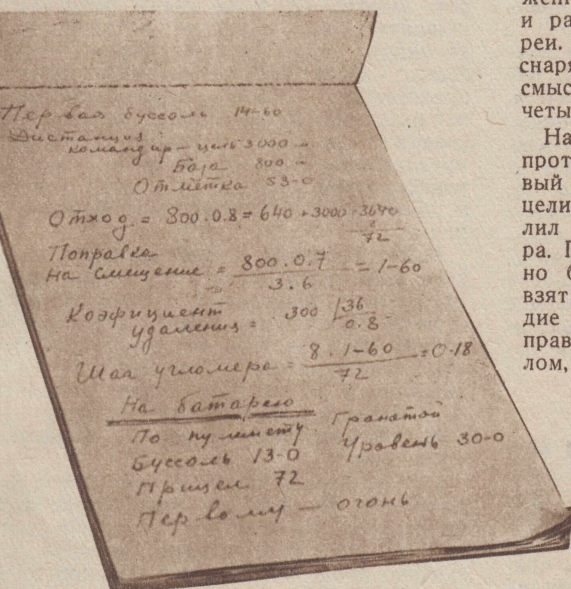 Первая буссоль 14-60
Дистанция
командир — цель 3000 м
База 800 м
Отметка 53-0
Отход = 800.0.8 = 640 + 3000 = 3640
72
Поправка
на смещение = 800.0.7 = 1-60
3.6
Коэфициент
удаления = 300 36
0.8
Шаг угломера = 8.1-60 = 0-18
72
На батарею
По пулемету Гранатой
Буссоль 13-0 Уровень 30-0
Прицел 72
Первому — огонь
и ра
реи.
снаря
смыс
четы
На
прот
вый
цели
лил
ра. 
но б
взят
дие
прав
лом,